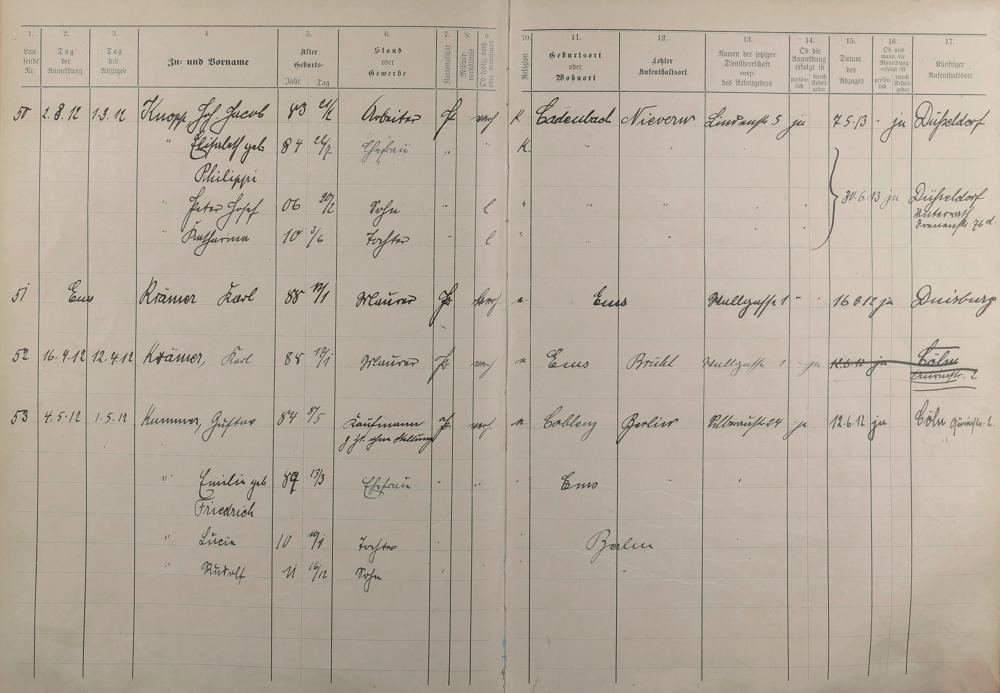 1. 2. 3. 4 5. 6. 7. 8. 9. 10. 11. 12. 13. 14. 15. 16. 17.
Lau-fende Nr. Tag der Anmeldung Tag des Anzuges Zu- und Vorname Alter Geburts- Jahr Tag Stand oder Gewerbe Nationalität Militär-verhältnis Ob ledig, verh. oder verwitwet Religion Geburtsort oder Wohnort Letzter Aufenthaltsort Namen der jetzigen Dienstherrschaft resp. des Arbeitgebers Ob die Anmeldung erfolgt ist persön-lich durch Arbeit-geber Datum des Abzuges Ob und wann die Abmeldung erfolgt ist persön-lich durch Arbeit-geber Künftiger Aufenthaltsort
50 2.8.12 1.3.12 Knopp, Jos. Jacob 83 21/2 Arbeiter Pr verh K Cadenbach Nievern Lindenstr 5 ja 7.5.13 - ja Düsseldorf
" Elisabeth geb 84 26/7 Ehefrau " " K. " " "
Philippi
" Peter Josef 06 20/2 Sohn l " " " " 30.6.13 ja Düsseldorf
Unterrath
" Katharina 10 3/6 Tochter l " " " 76d
51 Ems Krämer Karl 88 19/1 Maurer Pr verh " Ems Wallgasse 1 - - 16 8 12 ja Duisburg
52 16.4.12 12.4.12 Krämer, Karl 88 19/1 Maurer Pr verh " Ems Brühl Wallgasse 1 - ja 12.6.12 ja Cöln
53 4.5.12 1.5.12 Kammer, Gustav 84 8/5 Kaufmann Pr verh. " Coblenz Berlin 24 ja 12.6.12 ja Cöln
z. Zt. ohne Stellung
" Emilie geb 89 13/3 Ehefrau " " " Ems " "
Friedrich
" Lucie 10 Tochter " Berlin
" Rudolf 11 16/12 Sohn "